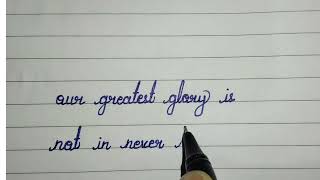 our greatest glory is
not in never